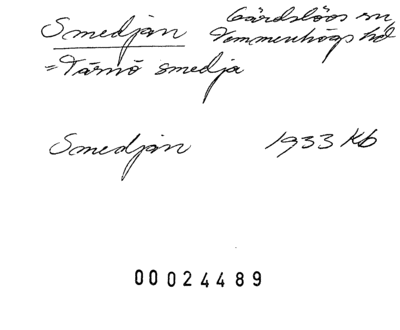 Smedjan Gärdslöös sn
Vemmenhögs hd
= Tärnö smedja
Smedjan 1933 Kb
00024489